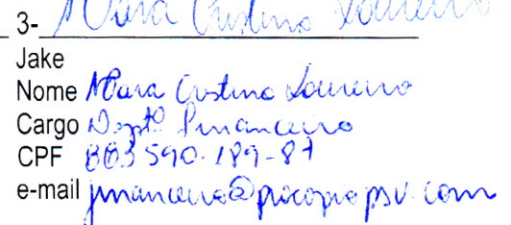 3- Mara Cristina Loureiro
Jake
Nome Mara Cristina Loureiro
Cargo Deptº Financeiro
CPF 803 590.189-87
e-mail financeiro@procopiopsv.com